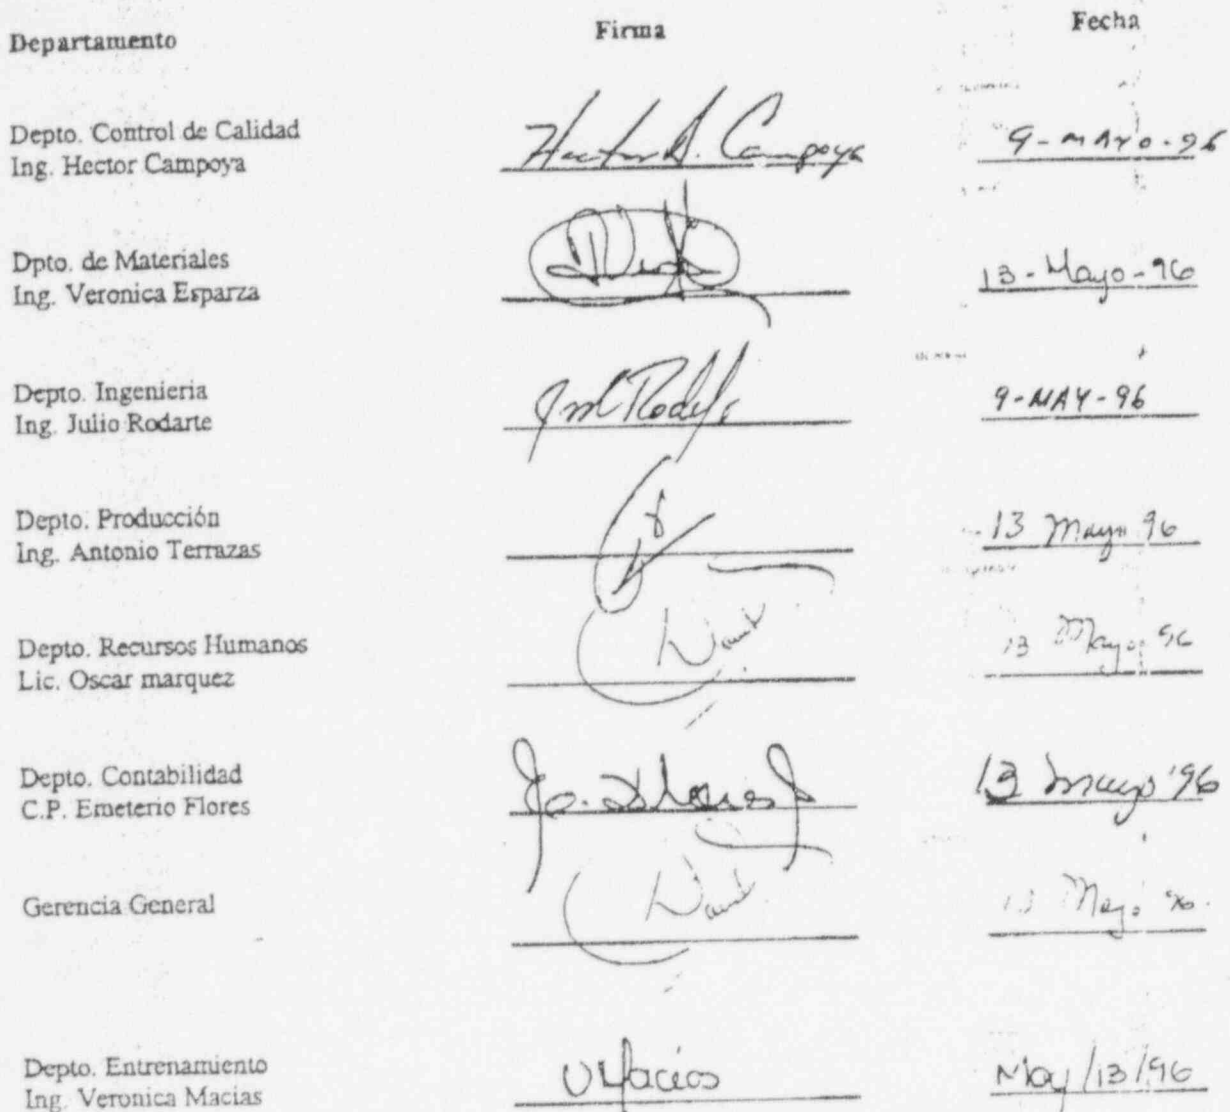 Departamento Firma Fecha
Depto. Control de Calidad
Ing. Hector Campoya Hector A. Campoya 9-MAYO-96
Dpto. de Materiales
Ing. Veronica Esparza 13-Mayo-96
Depto. Ingenieria
Ing. Julio Rodarte 9-MAY-96
Depto. Producción
Ing. Antonio Terrazas 13 Mayo 96
Depto. Recursos Humanos
Lic. Oscar marquez 13 Mayo 96
Depto. Contabilidad
C.P. Emeterio Flores 13 mayo '96
Gerencia General 13 Mayo 96.
Depto. Entrenamiento
Ing. Veronica Macias VMacias May/13/96